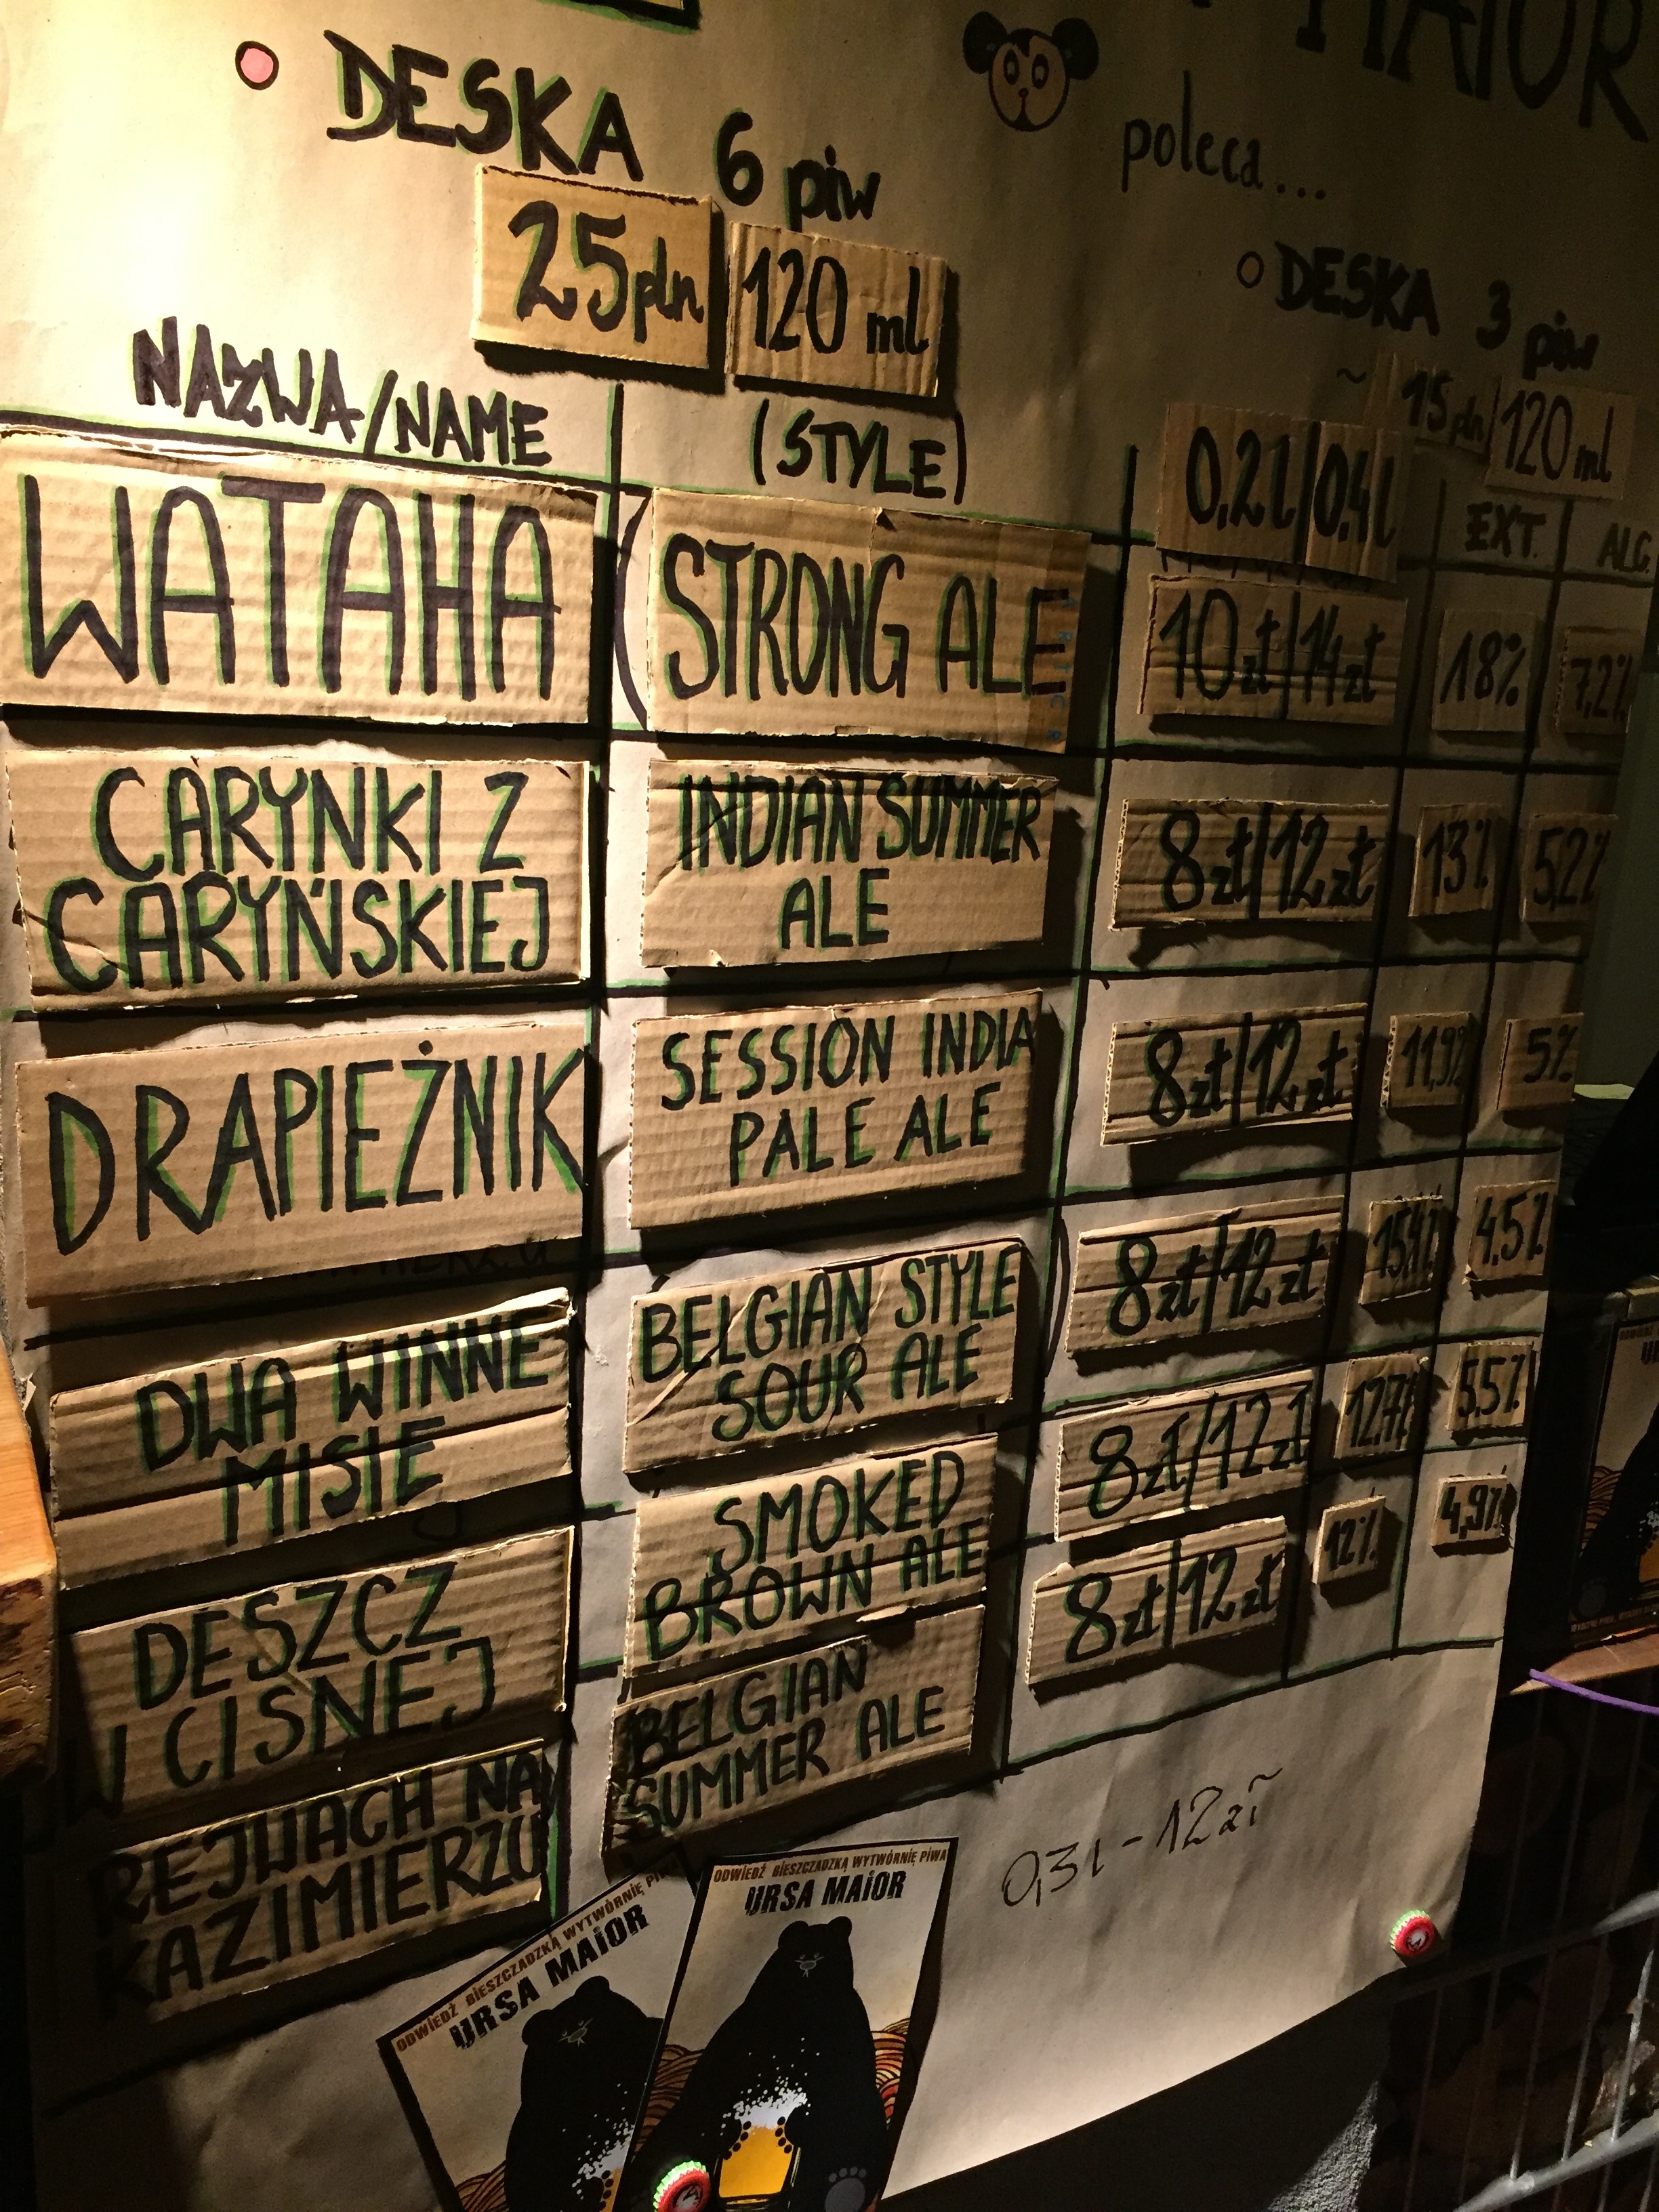 MAIOR
poleca...
DESKA 6 piw
25 pln 120 ml
DESKA 3 piw
~ 15 pln 120 ml
NAZWA/NAME (STYLE) 0,2l|0,4l EXT. ALC.
WATAHA (STRONG ALE 10 zł|14 zł 18% 7,2%
CARYNKI Z
CARYŃSKIEJ
INDIAN SUMMER
ALE
8 zł|12 zł 13% 5,2%
DRAPIEŻNIK
SESSION INDIA
PALE ALE
8 zł|12 zł 11,9% 5%
DWA WINNE
MISIE
BELGIAN STYLE
SOUR ALE
8 zł|12 zł 15,4% 4.5%
DESZCZ
W CISNEJ
SMOKED
BROWN ALE
8 zł/12 zł 12.7% 5.5%
REJWACH NA
KAZIMIERZU
BELGIAN
SUMMER ALE
8 zł|12 zł 12% 4,9%
0,3l - 12 zł
ODWIEDŹ BIESZCZADZKĄ WYTWÓRNIĘ PIWA
URSA MAIOR
ODWIEDŹ BIESZCZADZKĄ WYTWÓRNIĘ PIWA
URSA MAIOR